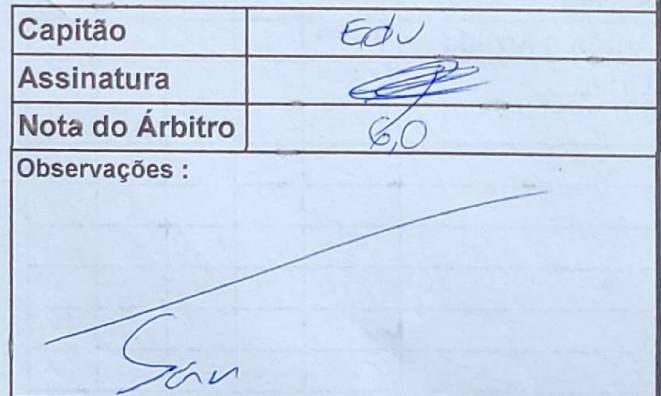 Capitão Edu
Assinatura
Nota do Árbitro 6,0
Observações :